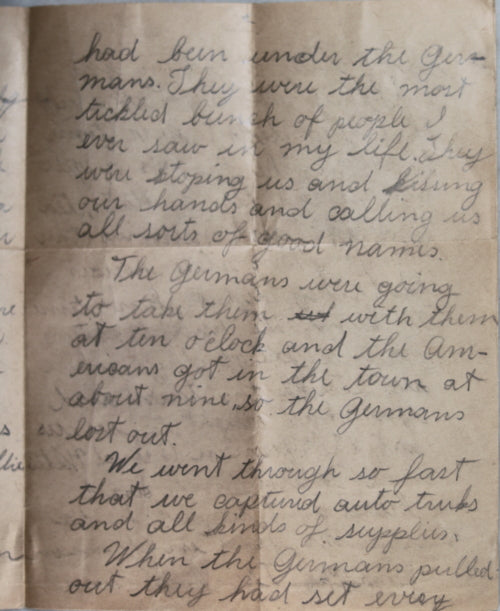 had been under the Ger-
mans. They were the most
tickled bunch of people I
ever saw in my life. They
were stoping us and kissing
our hands and calling us
all sorts of good names.
The Germans were going
to take them with them
at ten o'clock and the Am-
ericans got in the town at
about nine, so the Germans
lost out.
We went through so fast
that we captured auto truks
and all kinds of supplies.
When the Germans pulled
out they had set every